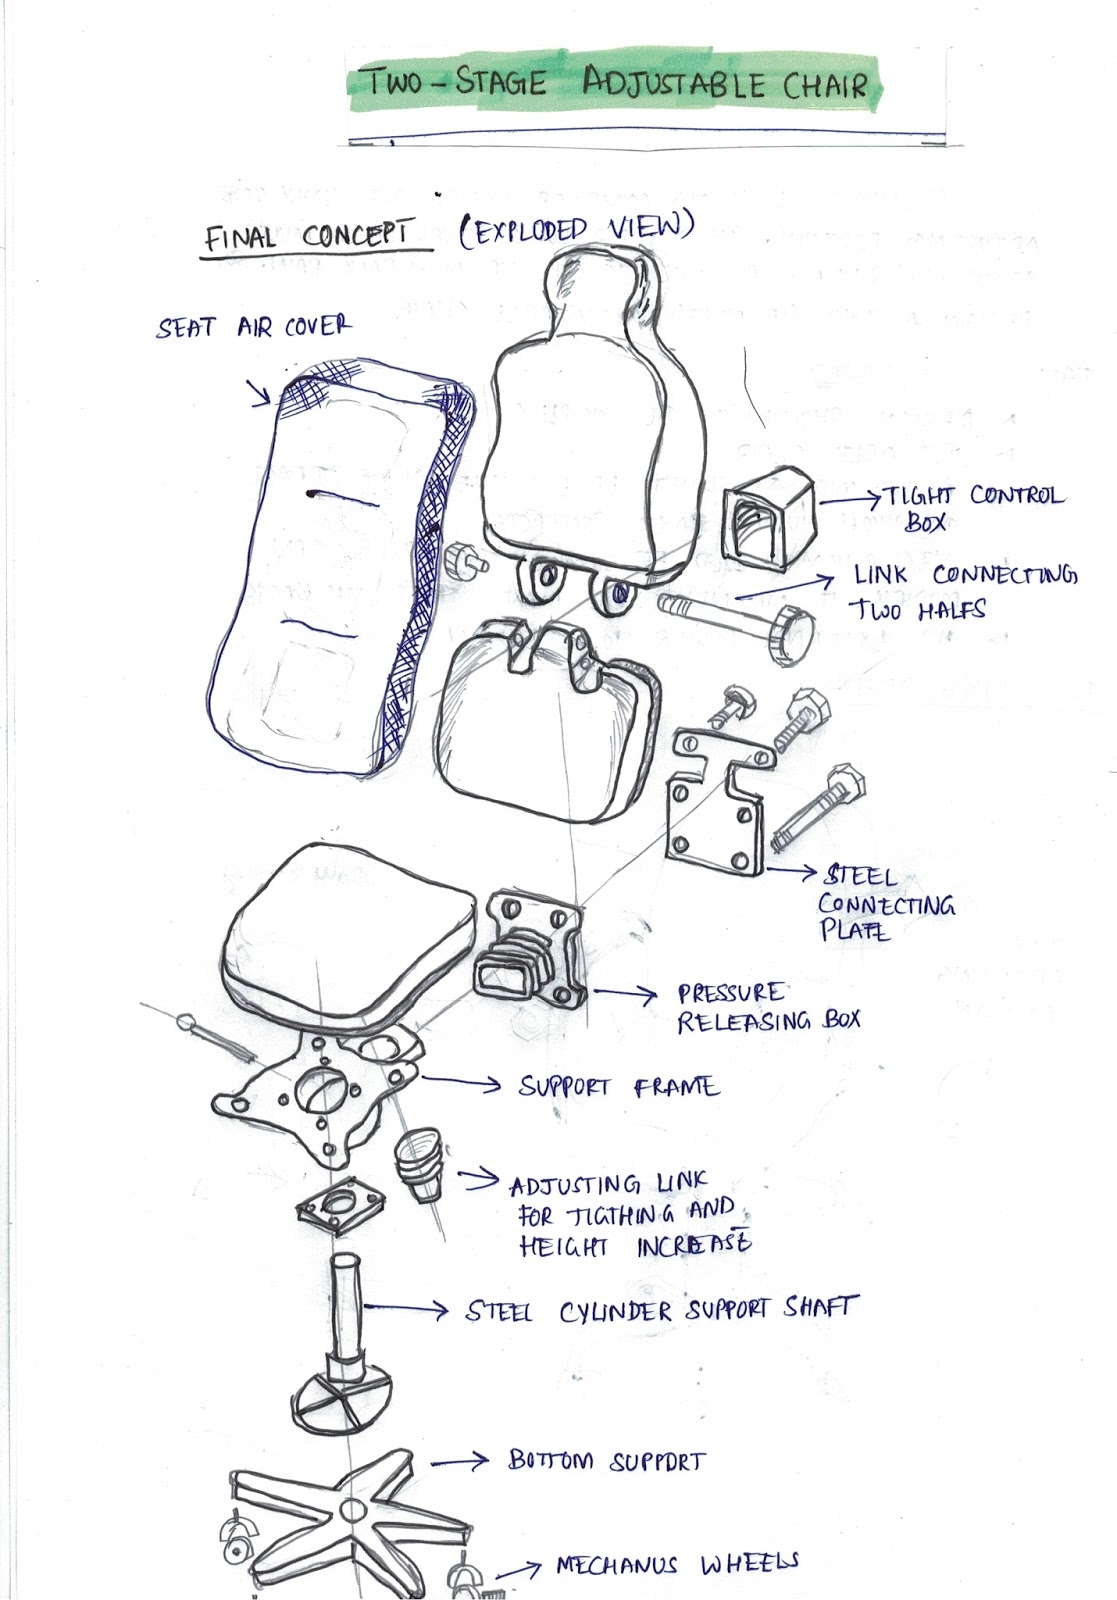 TWO-STAGE ADJUSTABLE CHAIR
FINAL CONCEPT (EXPLODED VIEW)
SEAT AIR COVER
TIGHT CONTROL
BOX
LINK CONNECTING
TWO HALFS
STEEL
CONNECTING
PLATE
PRESSURE
RELEASING BOX
SUPPORT FRAME
ADJUSTING LINK
FOR TIGTHING AND
HEIGHT INCREASE
STEEL CYLINDER SUPPORT SHAFT
BOTTOM SUPPORT
MECHANUS WHEELS